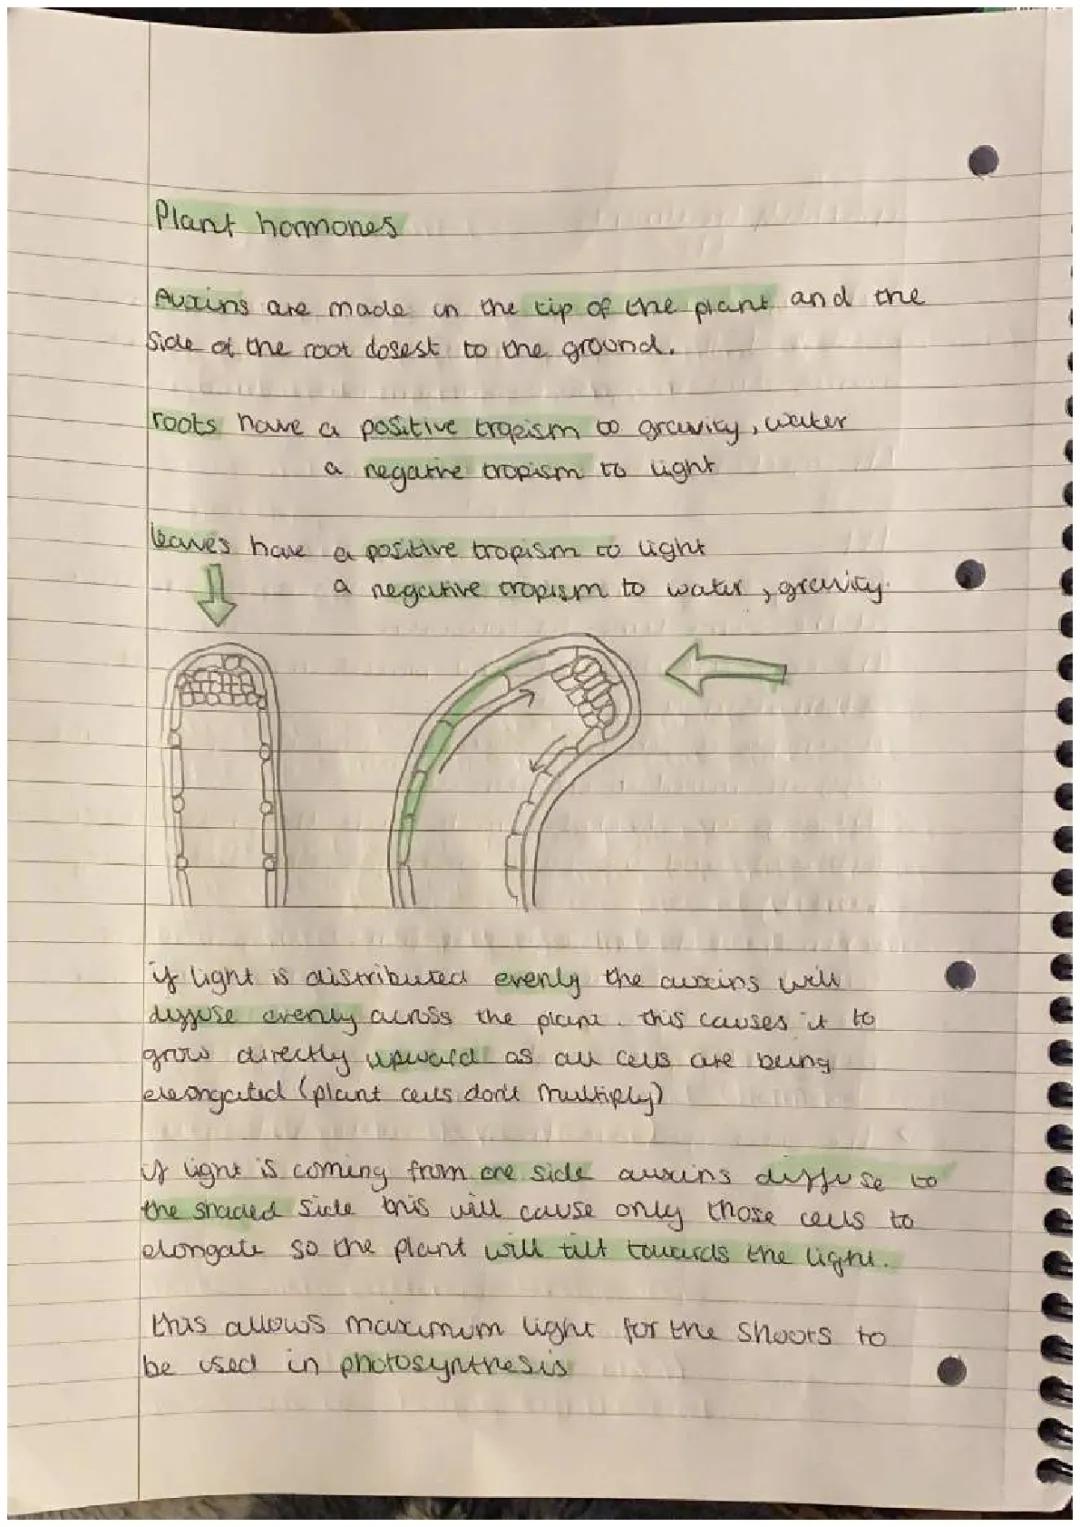 Plant hormones
Auxins are made in the tip of the plant and the
side of the root closest to the ground.
roots have a positive tropism to gravity, water
a negative tropism to light
leaves have a positive tropism to light
a negative tropism to water, gravity.
if light is distributed evenly the auxins will
diffuse evenly across the plant. this causes it to
grow directly upward as all cells are being
elongated (plant cells don't multiply)
if light is coming from one side auxins diffuse to
the shaded side this will cause only those cells to
elongate so the plant will tilt towards the light.
this allows maximum light for the shoots to
be used in photosynthesis